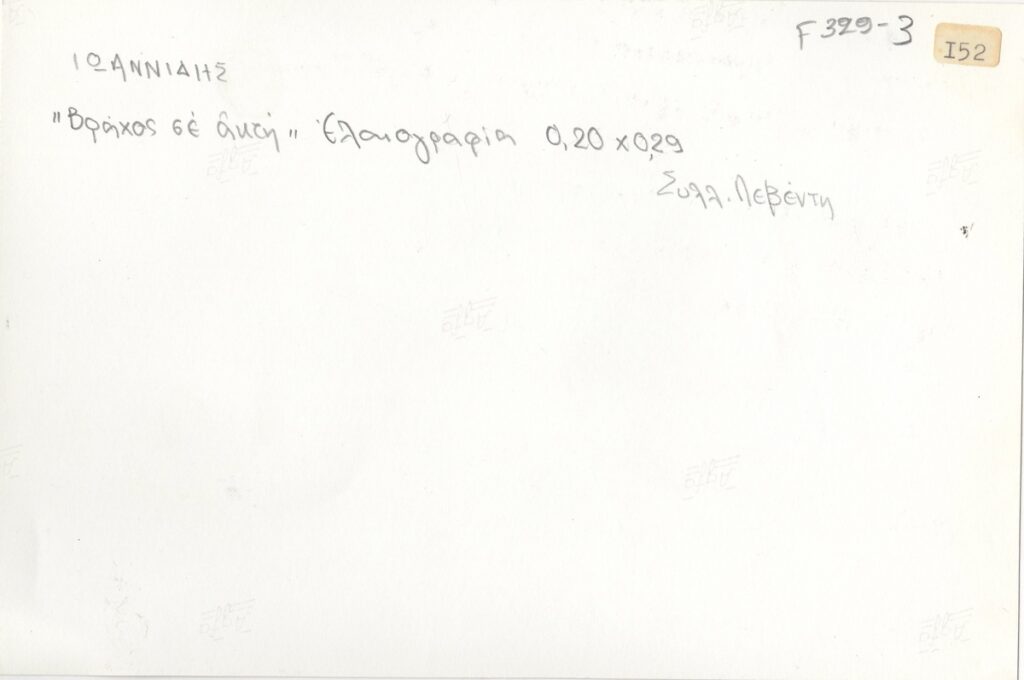 F 329-3
I52
ΙΩΑΝΝΙΔΗΣ
"Βράχος σέ ἀκτή" Ἐλαιογραφία 0,20 x 0,29
Συλλ. Λεβέντη